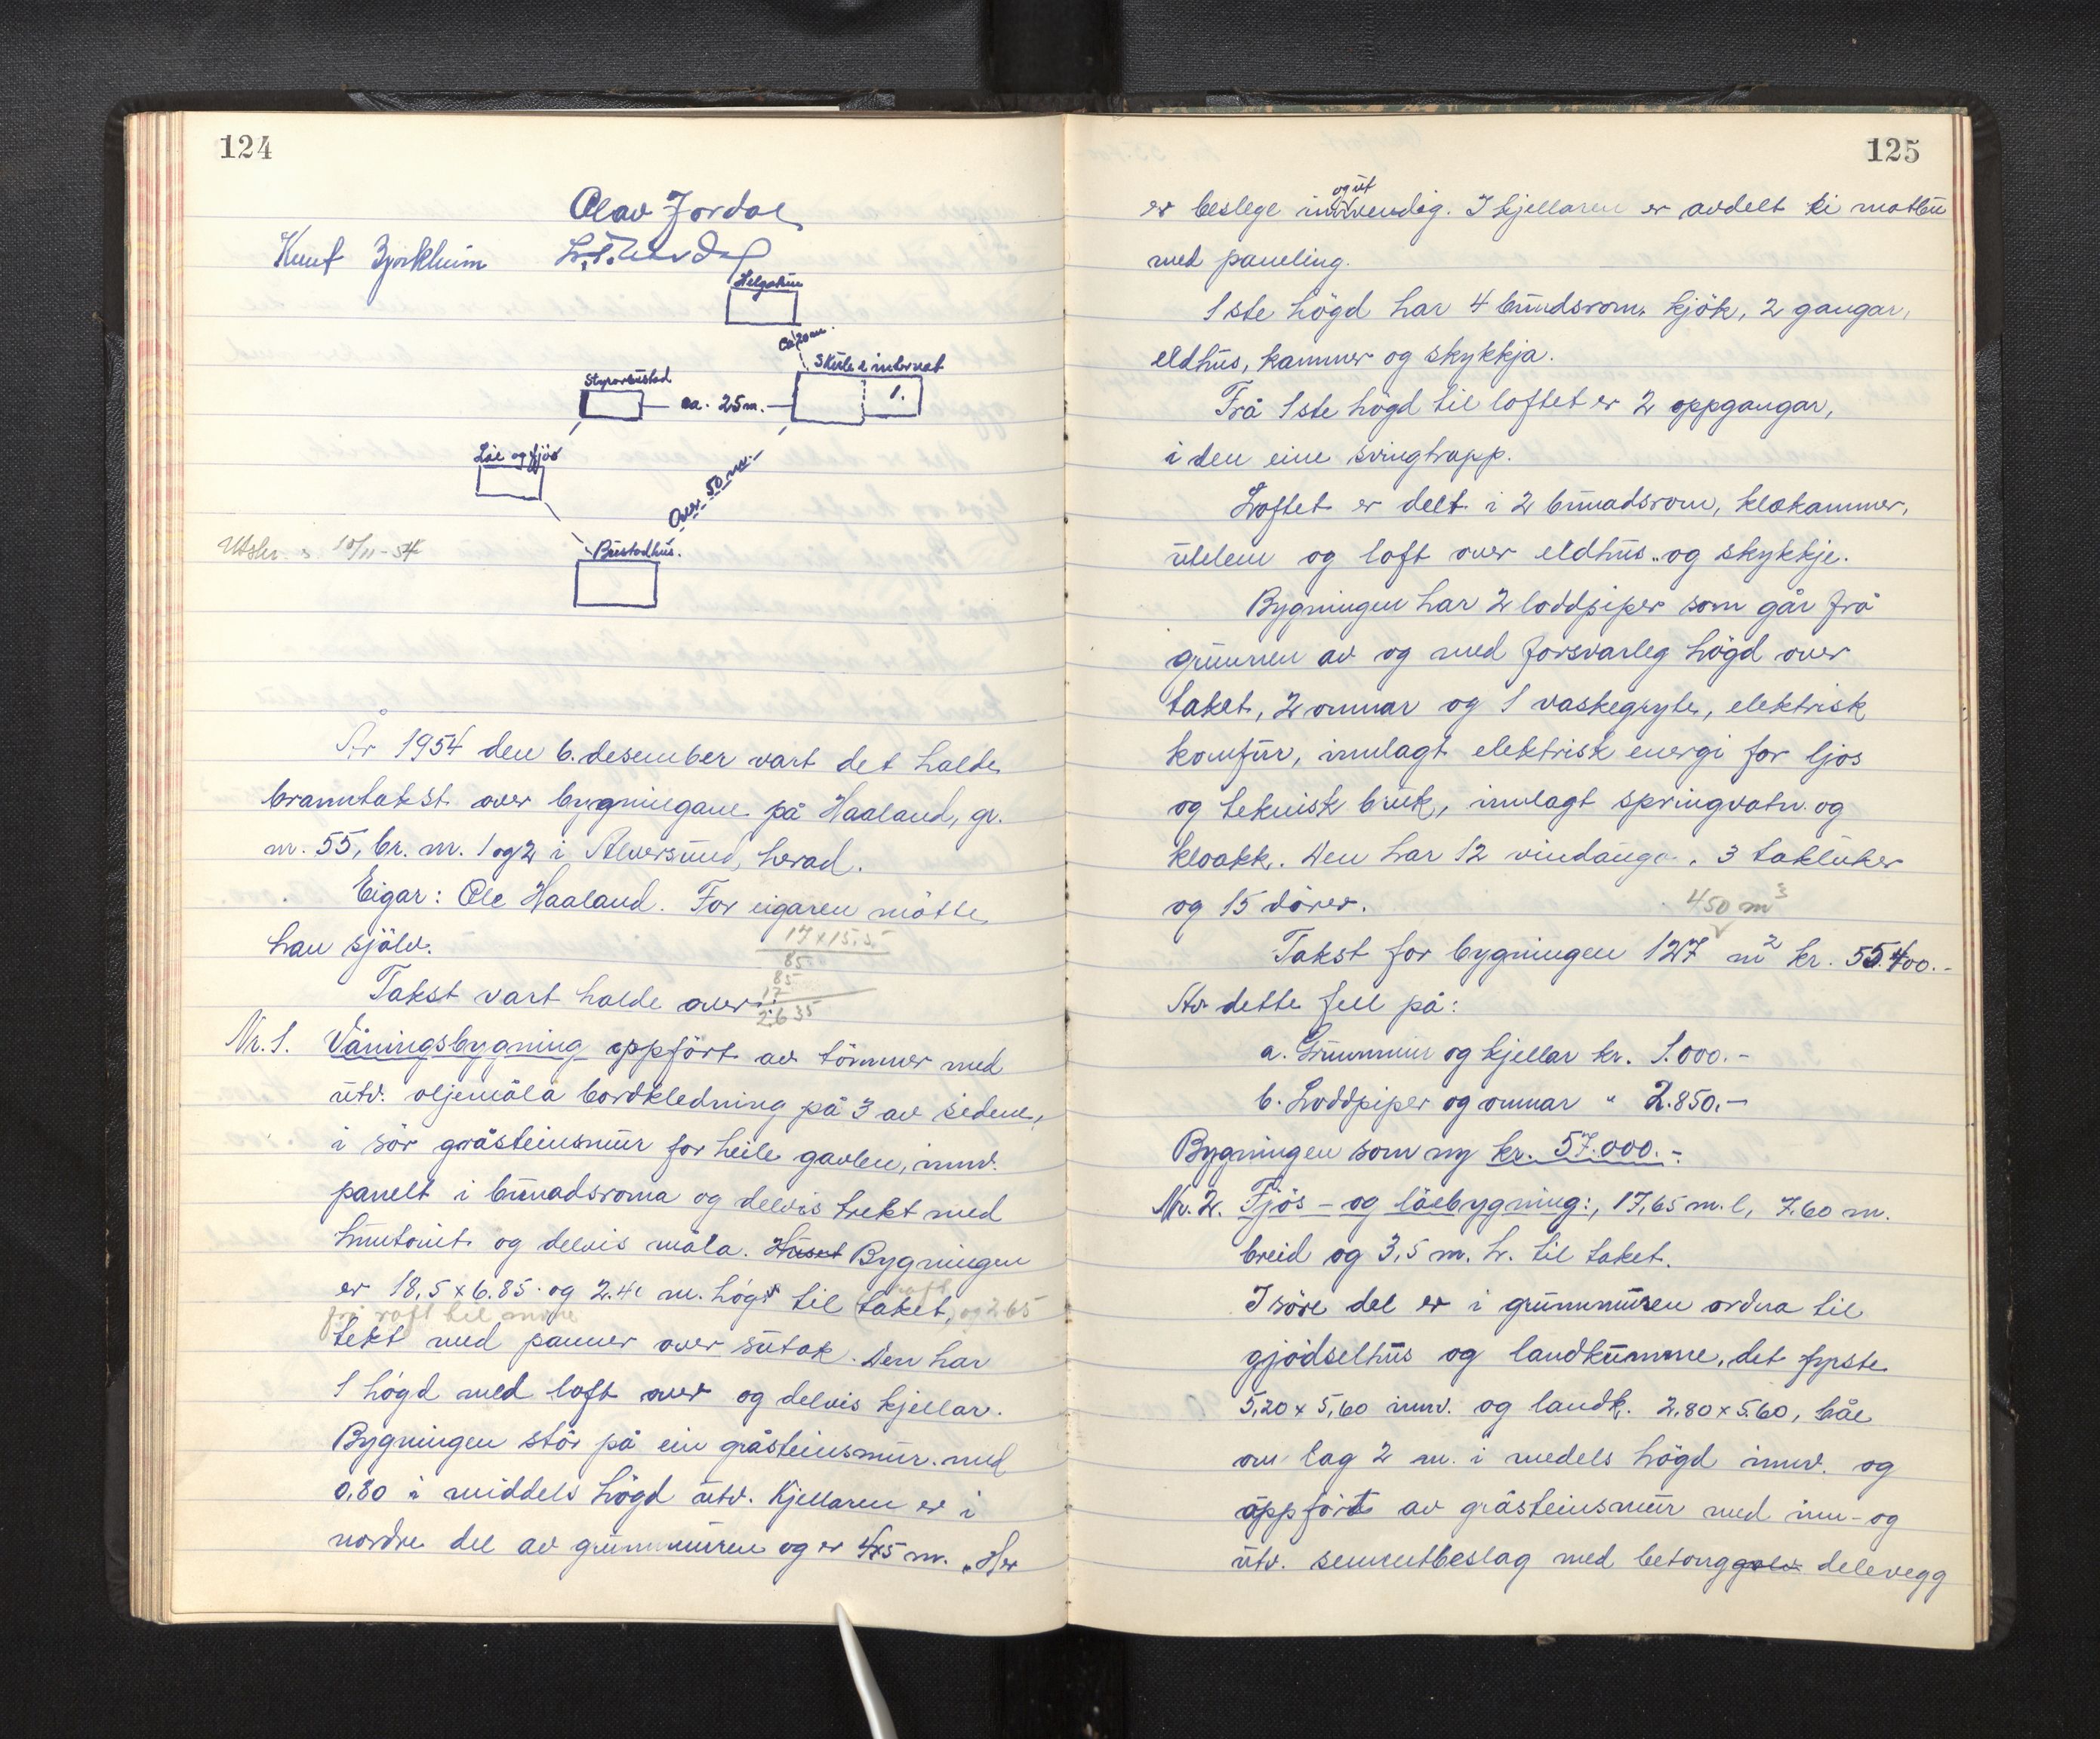 124
Olav Jordal
Knut Bjørkheim
Helgatun
ca 20 m.
Skule & internat
1.
Styrarbustad
ca. 25 m.
Löe og fjös
Over 50 m.
Bustadhus.
Utskr. 10/11-54
År 1954 den 6. desember vart det halde
branntakst over bygningane på Haaland, gr.
nr. 55, br. nr. 1 og 2 i Alversund, herad.
Eigar: Ole Haaland. For eigaren mötte
han sjölv.
17 x 15,5
85
85
17
2635
Takst vart halde over:
Nr. 1. Våningsbygning oppfört av tömmer med
utv. oljemåla bordkledning på 3 av sidene,
i sör gråsteinsmur for heile gavlen, innv.
panelt i bunadsroma og delvis trekt med
huntonit og delvis måla. Huset Bygningen
er 18,5 x 6.85 og 2.40 m. högd til taket, og 2.65
frå roft til möne
tekt med panner over sutak. Den har
1 högd med loft over og delvis kjellar.
Bygningen stör på ein gråsteinsmur med
0,80 i middels högd utv. Kjellaren er i
nordre del av grunnmuren og er 4x5 m. Her
125
er beslege innvendig. I kjellaren er avdelt ei matbu
og ut
med paneling.
1ste högd har 4 bundsrom, kjök, 2 gangar,
eldhus, kammer og skykkja.
Frå 1ste högd til loftet er 2 oppgangar,
i den eine svingtrapp.
Loftet er delt i 2 bunadsrom, klekammer,
utelem og loft over eldhus og skykkje.
Bygningen har 2 loddpiper som går frå
grunnen av og med forsvarleg högd over
taket, 2 omnar og 1 vaskegryte, elektrisk
komfur, innlagt elektrisk energi for ljos
og teknisk bruk, innlagt springvatn og
kloakk. Den har 12 vindauga, 3 takluker
og 15 dörer.
450 m3
Takst for bygningen 127 m2 kr. 55.400.-
Av dette fell på:
a. Grunnmur og kjellar kr. 1.000.-
b. Loddpiper og omnar " 2.850.-
Bygningen som ny kr. 57.000.-
Nr. 2. Fjös- og löebygning:, 17,65 m. l, 7,60 m.
breid og 3,5 m. h. til taket.
I söre del er i grunnmuren ordna til
gjödselhus og landkumme, det fyrste
5,20 x 5,60 innv. og landk. 2,80 x 5.60, båe
om lag 2 m. i medels högd innv. og
oppfört av gråsteinsmur med inn- og
utv. sementbeslag med betonggolv delevegg